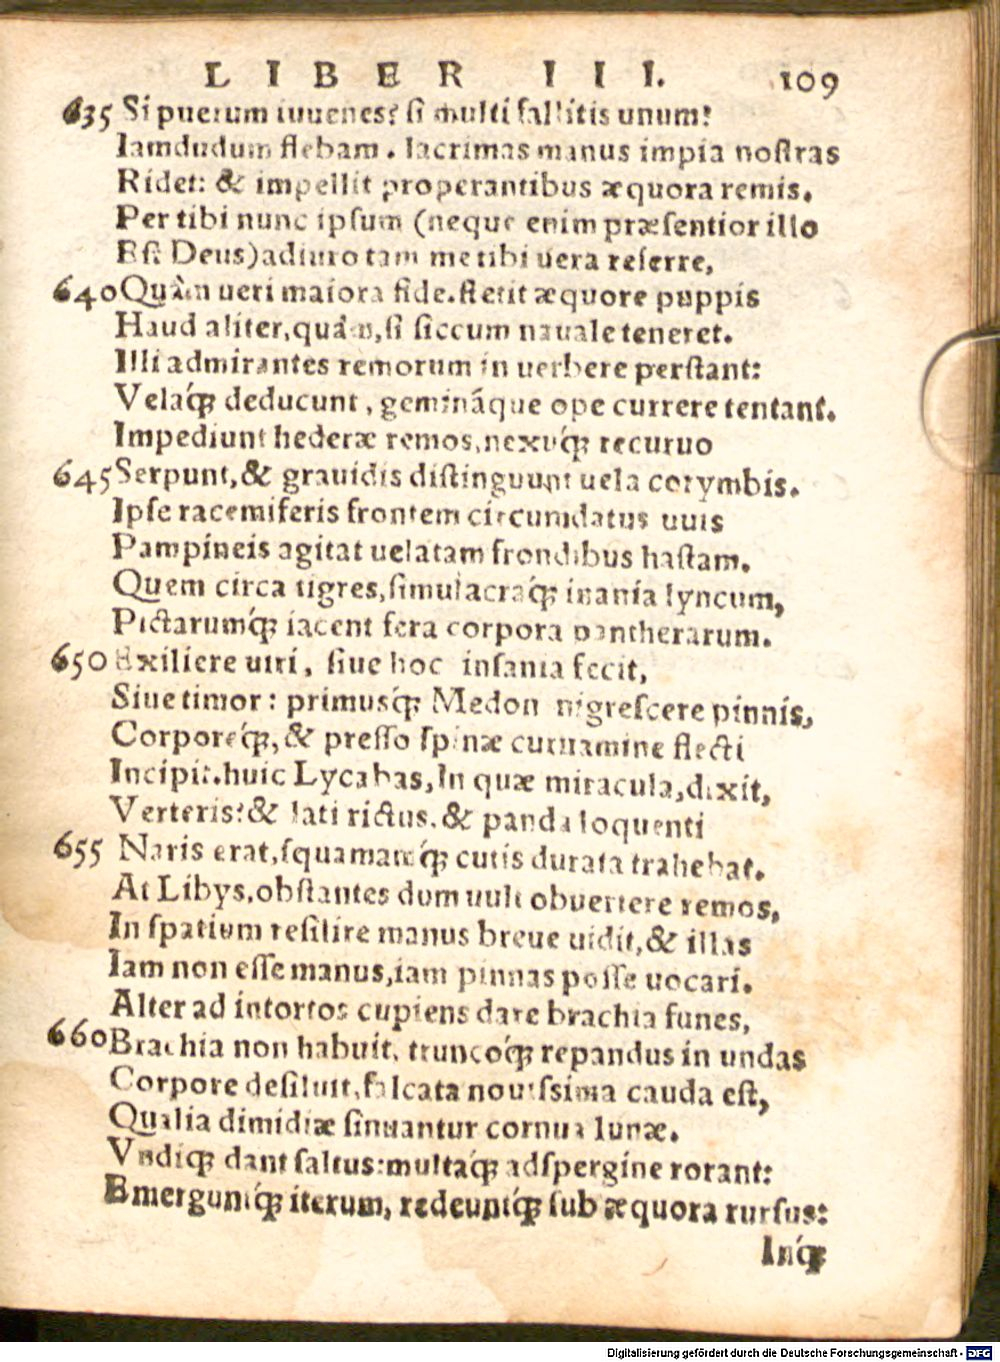 LIBER III. 109
635 Si puerum iuuenes? si multi fallitis unum?
Iamdudum flebam. lacrimas manus impia nostras
Ridet: & impellit properantibus æquora remis.
Per tibi nunc ipsum (neque enim præsentior illo
Est Deus) adiuro tam me tibi uera referre,
640 Quàm ueri maiora fide. stetit æquore puppis
Haud aliter, quàm, si siccum nauale teneret.
Illi admirantes remorum in uerbere perstant:
Velaq́; deducunt, geminãque ope currere tentant.
Impediunt hederæ remos, nexuq́; recuruo
645 Serpunt, & grauidis distinguunt uela corymbis.
Ipse racemiferis frontem circumdatus uuis
Pampineis agitat uelatam frondibus hastam.
Quem circa tigres, simulacraq́; inania lyncum,
Pictarumq́; iacent fera corpora pantherarum.
650 Exiliere uiri, siue hoc insania fecit,
Siue timor: primusq́; Medon nigrescere pinnis,
Corporeq́;, & presso spinæ curuamine flecti
Incipit. huic Lycabas, In quæ miracula, dixit,
Verteris? & lati rictus, & panda loquenti
655 Naris erat, squamamq́; cutis durata trahebat.
At Libys, obstantes dum uult obuertere remos,
In spatium resilire manus breue uidit, & illas
Iam non esse manus, iam pinnas posse uocari.
Alter ad intortos cupiens dare brachia funes,
660 Brachia non habuit, truncoq́; repandus in undas
Corpore desiluit, falcata nouissima cauda est,
Qualia dimidiæ sinuantur cornua lunæ.
Vndiq; dant saltus: multaq́; adspergine rorant:
Emerguntq́; iterum, redeuntq́; sub æquora rursus:
Inq́;
Digitalisierung gefördert durch die Deutsche Forschungsgemeinschaft - DFG